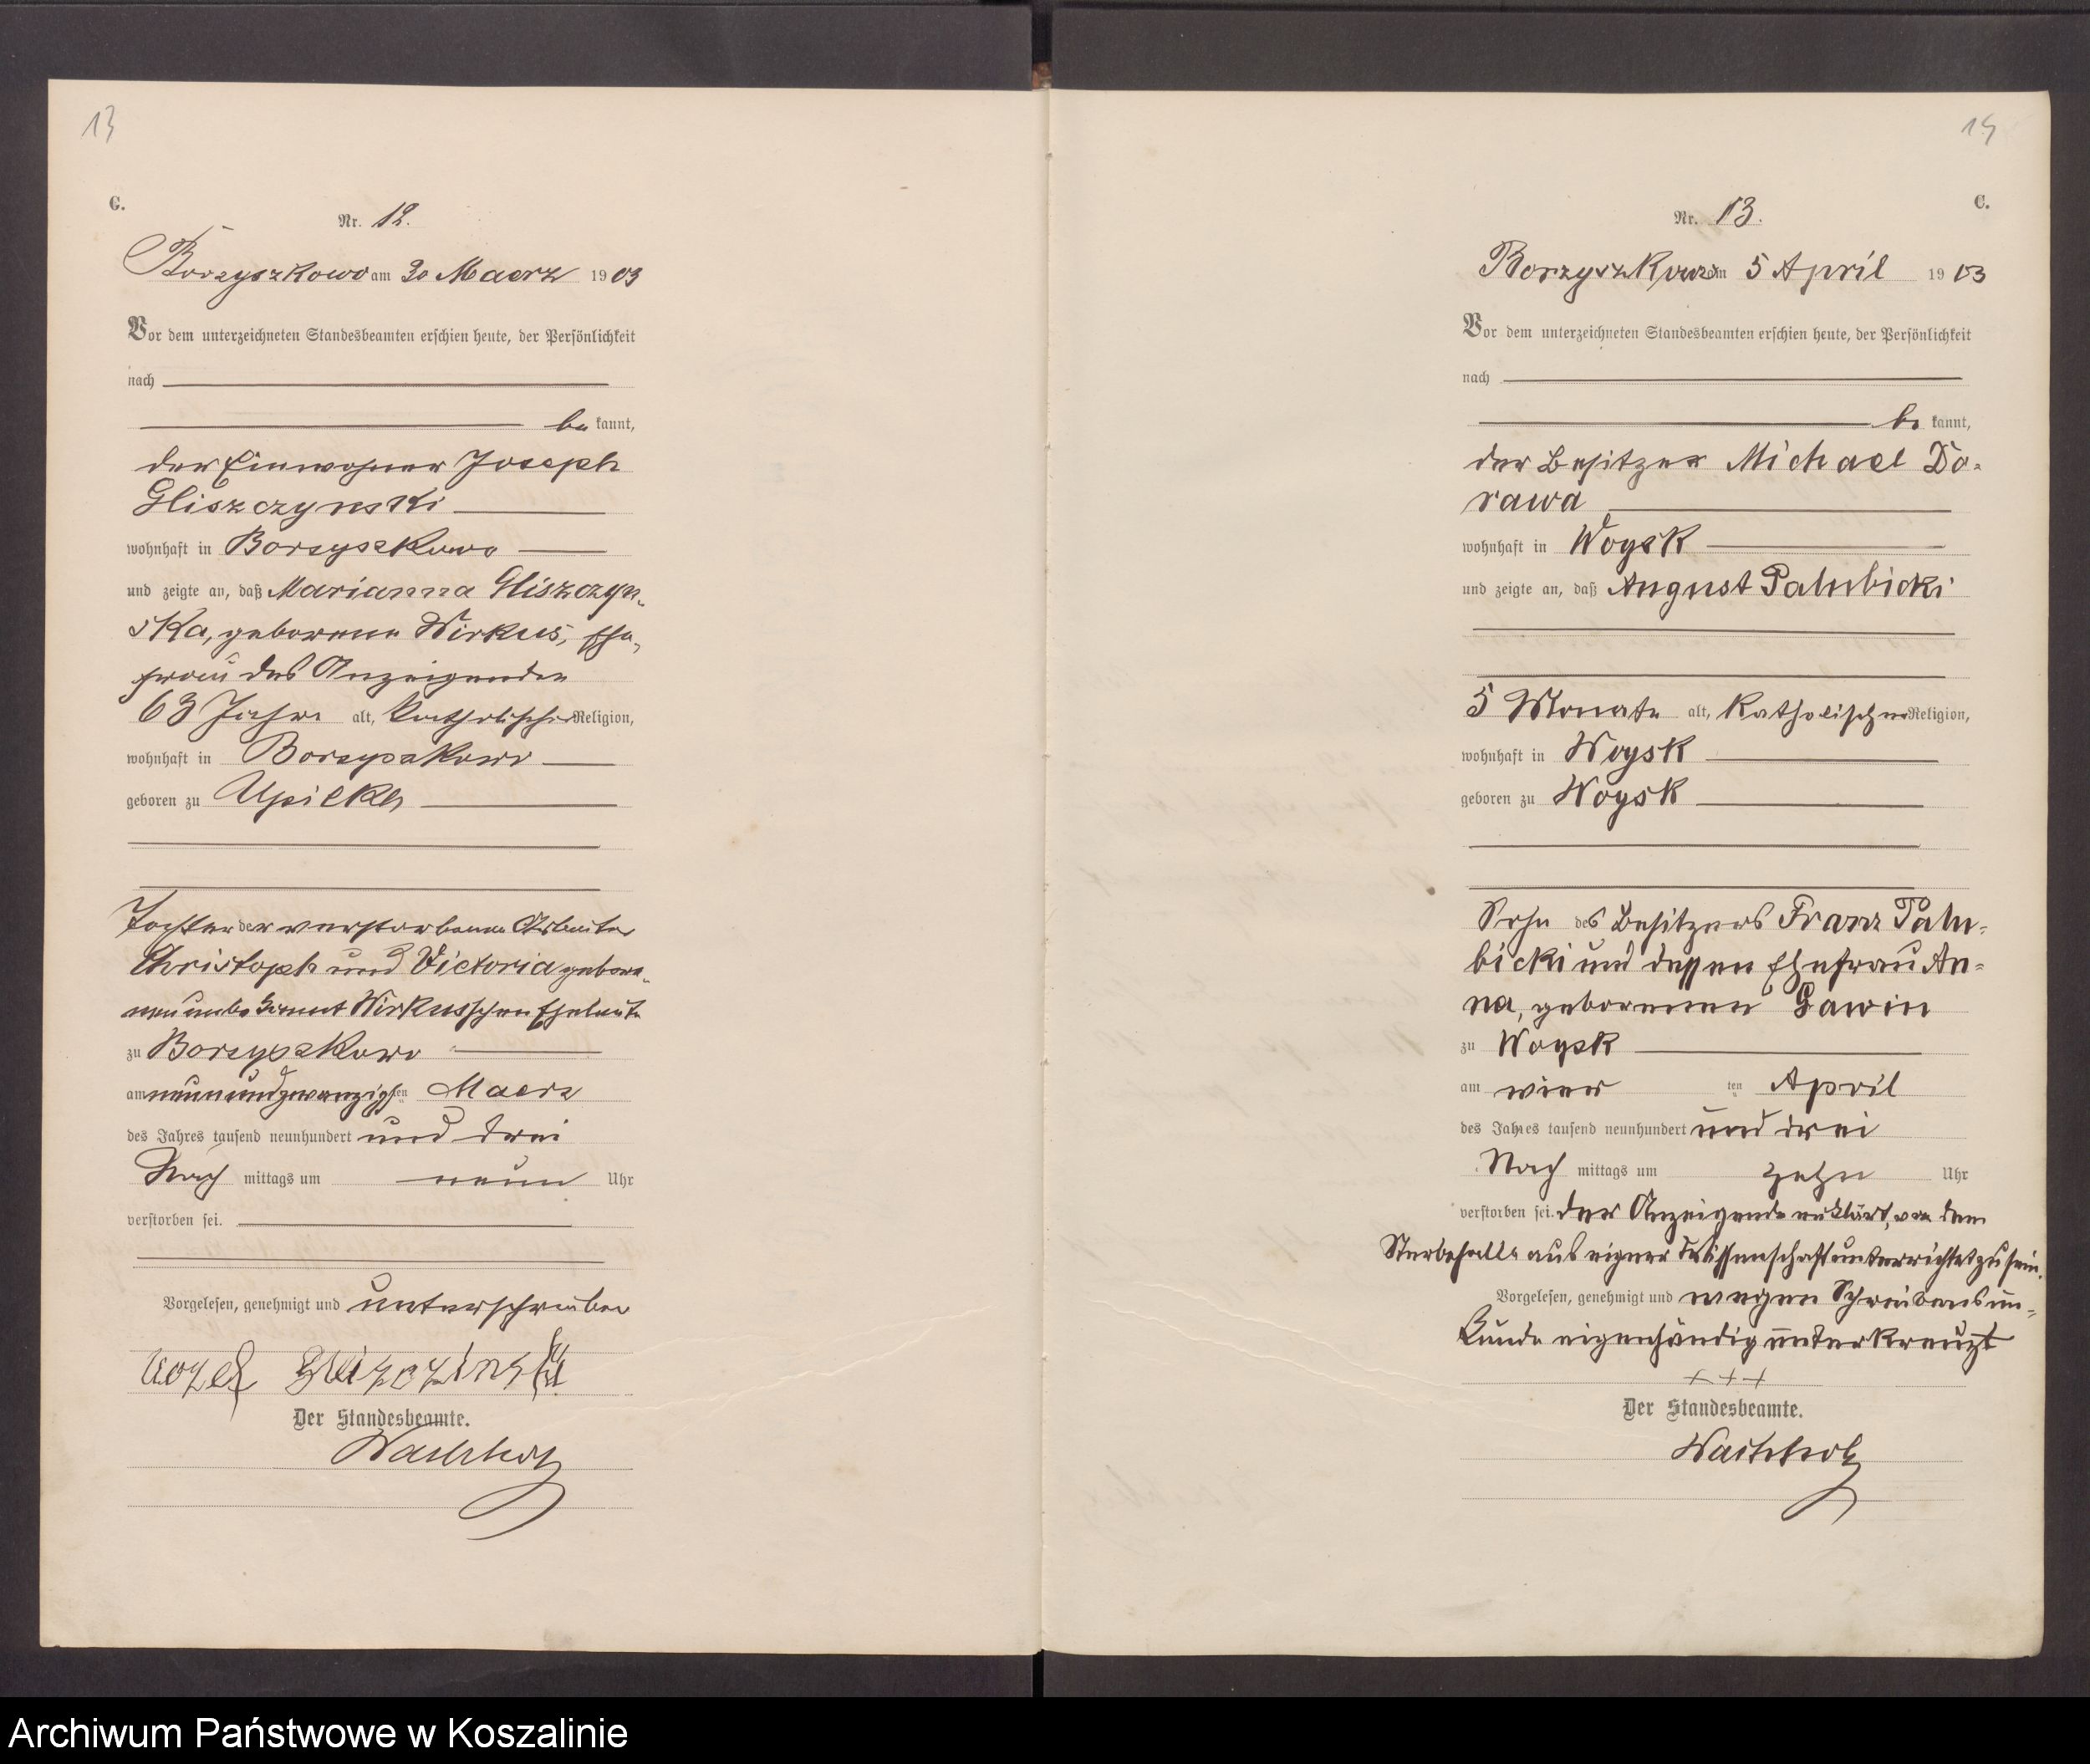 13
C.
Nr. 12.
Borzyszkowo am 30 Maerz 1903
Vor dem unterzeichneten Standesbeamten erschien heute, der Persönlichkeit
nach
be kannt,
der Einwohner Joseph
Gliszczynski
wohnhaft in Borzyszkowo
und zeigte an, daß Marianna Gliszczyn-
ska, geborene Wirkus, Ehe-
frau des Anzeigenden
63 Jahre alt, katholischer Religion,
wohnhaft in Borzyszkowo
geboren zu Upilka
Tochter der verstorbenen Arbeiter
Christoph und Victoria gebore-
nen unbekannt Wirkusschen Eheleute
zu Borzyszkowo
am neunundzwanzigsten Maerz
des Jahres tausend neunhundert und drei
Nach mittags um neun Uhr
verstorben sei.
Vorgelesen, genehmigt und unterschrieben
Der Standesbeamte.
Wachholz
14
C.
Nr. 13.
Borzyszkowo am 5 April 1903
Vor dem unterzeichneten Standesbeamten erschien heute, der Persönlichkeit
nach
be kannt,
der Besitzer Michael Do-
rawa
wohnhaft in Woysk
und zeigte an, daß August Palubicki
5 Monate alt, katholischer Religion,
wohnhaft in Woysk
geboren zu Woysk
Sohn des Besitzers Franz Palu-
bicki und dessen Ehefrau An-
na, geborenen Gawin
zu Woysk
am vier ten April
des Jahres tausend neunhundert und drei
Nach mittags um zehn Uhr
verstorben sei. Der Anzeigende erklärt, von dem
Sterbefalle aus eigner Wissenschaft unterrichtet zu sein.
Vorgelesen, genehmigt und wegen Schreibensun-
kunde eigenhändig unterkreuzt
+++
Der Standesbeamte.
Wachholz
Archiwum Państwowe w Koszalinie